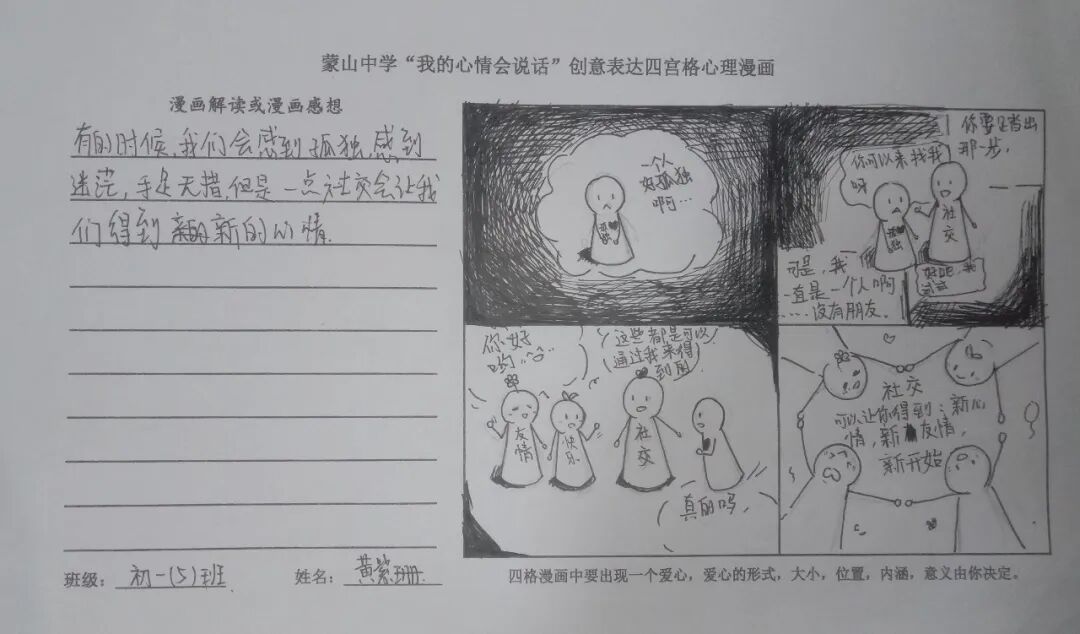 蒙山中学“我的心情会说话”创意表达四宫格心理漫画
漫画解读或漫画感想
有的时候,我们会感到孤独感到
迷茫,手足无措,但是一点社交会让我
们得到新的心情.
班级:初一(5)班
姓名:黄紫珊.
一个人
好孤独
啊...
孤独
你要迈出
那一步,
你可以来找我
呀
孤独
社
交
好吧,我
试试
可是,我
一直是一个人啊
……没有朋友。
你好
哟
这些都是可以
通过我来得
到朋
友
情
快
乐
社
交
真的吗,
社交
可以让你得到:新心
情,新友情,
新开始
四格漫画中要出现一个爱心,爱心的形式,大小,位置,内涵,意义由你决定。